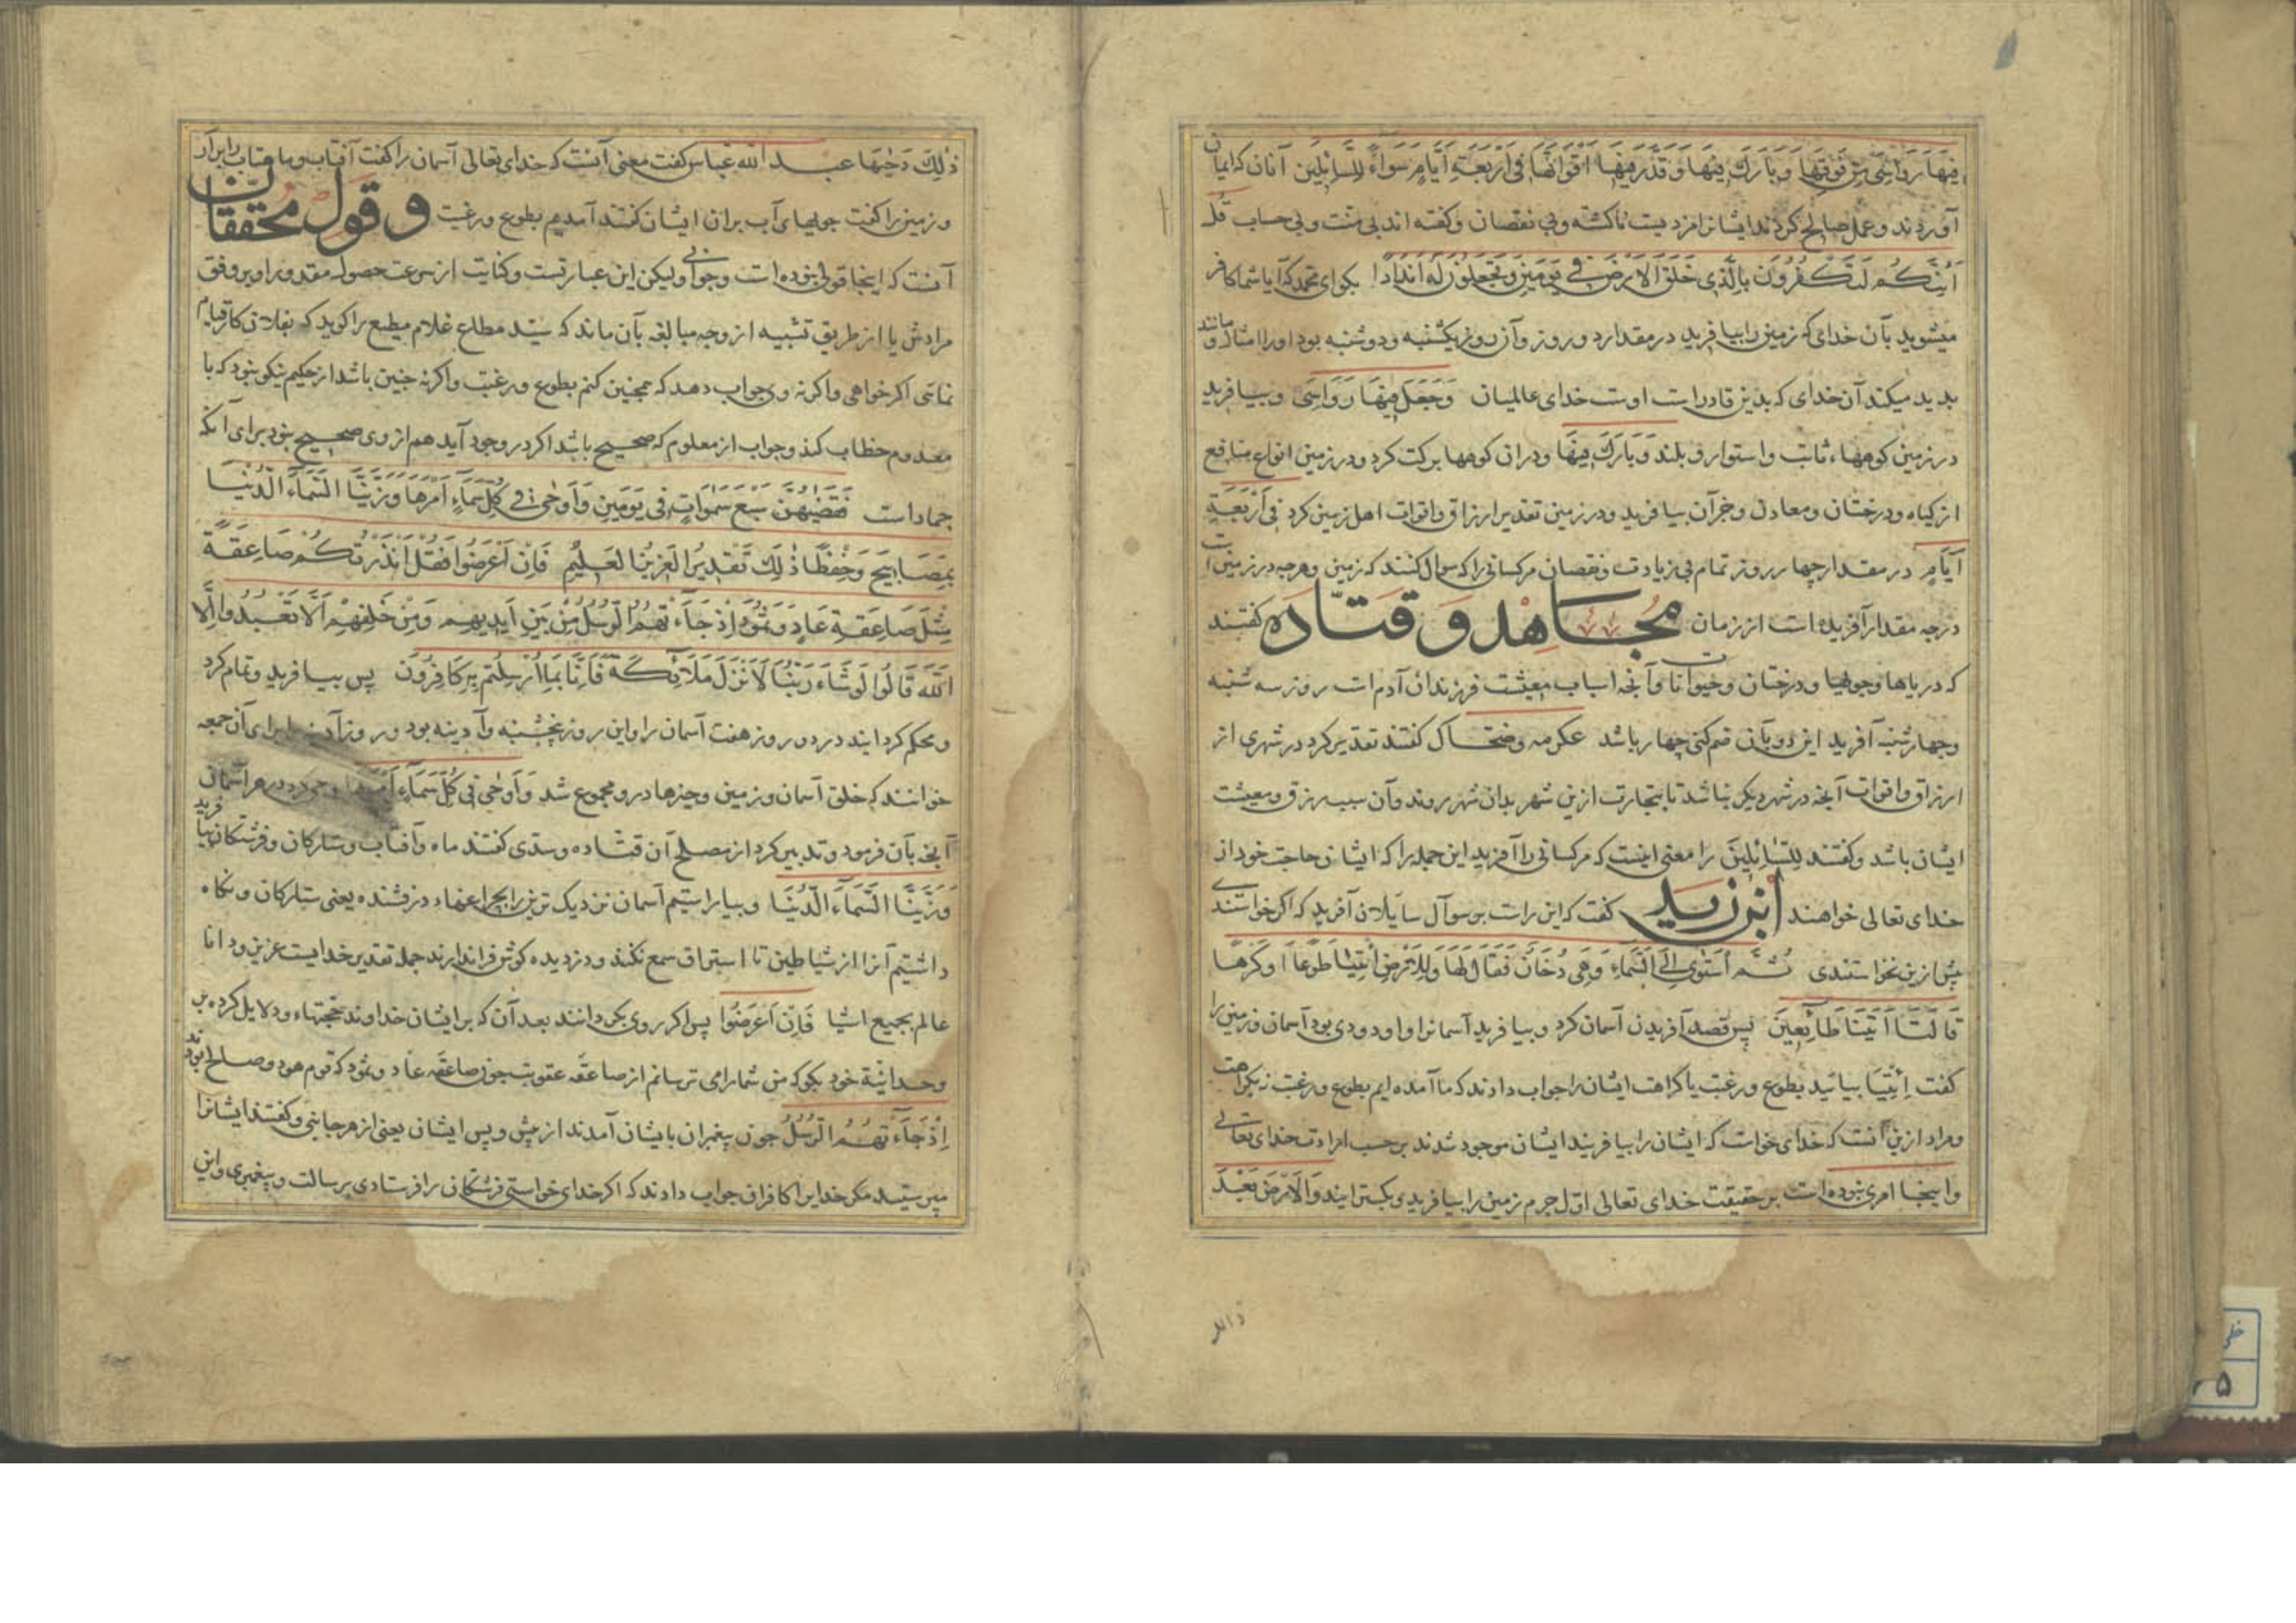 فِيهَا رَوَاسِيَ مِنْ فَوْقِهَا وَبَارَكَ فِيهَا وَقَدَّرَ فِيهَا أَقْوَاتَهَا فِي أَرْبَعَةِ أَيَّامٍ سَوَاءً لِلسَّائِلِينَ آنان که ایمان
آوردند و عمل صالح کردند ایشانرا مزدیست ناکشته و بی نقصان و کفته اند بی منت و بی حساب قُلْ
أَئِنَّكُمْ لَتَكْفُرُونَ بِالَّذِي خَلَقَ الْأَرْضَ فِي يَوْمَيْنِ وَتَجْعَلُونَ لَهُ أَنْدَادًا بکو ای محمد که آیا شما کافر
میشوید بآن خدای که زمین را بیافرید در مقدار دو روز و آن روز یکشنبه و دوشنبه بود و او را امثال و مانند
بدید میکند آن خدای که بدین قادر است اوست خدای عالمیان وَجَعَلَ فِيهَا رَوَاسِيَ و بیافرید
در زمین کوهها ثابت و استوار و بلند وَبَارَكَ فِيهَا و دران کوهها برکت کرد و در زمین انواع منافع
از کیاه و درختان و معادن و جز آن بیافرید و در زمین تقدیر ارزاق و اقوات اهل زمین کرد فِي أَرْبَعَةِ
أَيَّامٍ در مقدار چهار روز تمام بی زیادت و نقصان مرکسانی را که سوال کنند که زمین و هرچه در زمین است
در چه مقدار آفریده است از زمان مجاهد و قتاده کفتند
که دریاها و جویها و درختان و حیوانات و آنچه اسباب معیشت فرزندان آدم است روز سه شنبه
و چهارشنبه آفرید این دو بآن ضم کنی چهار باشد عکرمه و ضحاک کفتند تقدیر کرد در شهری از
ارزاق و اقوات آنچه در شهر دیکر نباشد تا بتجارت ازین شهر بدان شهر روند و آن سبب رزق و معیشت
ایشان باشد و کفتند لِلسَّائِلِينَ را معنی اینست که مرکسانی را آفرید این جمله را که ایشان حاجت خود از
خدای تعالی خواهند ابن زید کفت که این راست بر سوآل سایلان آفرید که اکر خواستندی
پیش ازین نخواستندی ثُمَّ اسْتَوَى إِلَى السَّمَاءِ وَهِيَ دُخَانٌ فَقَالَ لَهَا وَلِلْأَرْضِ ائْتِيَا طَوْعًا أَوْ كَرْهًا
قَالَتَا أَتَيْنَا طَائِعِينَ پس قصد آفریدن آسمان کرد و بیافرید آسمانرا و او دودی بود آسمان و زمین را
کفت اِئْتِيَا بیائید بطوع و رغبت یا کراهت ایشان را جواب دادند که ما آمده ایم بطوع و رغبت نه بکراهت
و مراد ازین آنست که خدای خواست که ایشان را بیافریند ایشان موجود شدند بر حسب ارادت خدای تعالی
و اینجا امری نبوده است بر حقیقت خدای تعالی اول جرم زمین را بیافرید و بکسترانید وَالْأَرْضَ بَعْدَ
ذَلِكَ دَحَيهَا عبد الله عباس کفت معنی آنست که خدای تعالی آسمان را کفت آفتاب و ماهتاب را برآر
و زمین را کفت جویهای آب بران ایشان کفتند آمدیم بطوع و رغبت و قول محققان
آنست که اینجا قولی نبوده است و جوابی ولیکن این عبارتست و کنایت از سرعت حصول مقدور او بر وفق
مرادش یا از طریق تشبیه از وجه مبالغه بآن ماند که سید مطاع غلام مطیع را کوید که بفلان کار قیام
نمائی اکر خواهی و اکر نه وی جواب دهد که همچنین کنم بطوع و رغبت و اکر نه چنین باشد از حکیم نیکو نبود که با
معدوم خطاب کند و جواب از معلوم که صحیح باشد اکر در وجود آید هم از وی صحیح نبود برای آنکه
جمادست فَقَضَيهُنَّ سَبْعَ سَمَوَاتٍ فِي يَوْمَيْنِ وَأَوْحَى فِي كُلِّ سَمَاءٍ أَمْرَهَا وَزَيَّنَّا السَّمَاءَ الدُّنْيَا
بِمَصَابِيحَ وَحِفْظًا ذَلِكَ تَقْدِيرُ الْعَزِيزِ الْعَلِيمِ فَإِنْ أَعْرَضُوا فَقُلْ أَنْذَرْتُكُمْ صَاعِقَةً
مِثْلَ صَاعِقَةِ عَادٍ وَثَمُودَ إِذْ جَاءَتْهُمُ الرُّسُلُ مِنْ بَيْنِ أَيْدِيهِمْ وَمِنْ خَلْفِهِمْ أَلَّا تَعْبُدُوا إِلَّا
اللَّهَ قَالُوا لَوْ شَاءَ رَبُّنَا لَأَنْزَلَ مَلَائِكَةً فَإِنَّا بِمَا أُرْسِلْتُمْ بِهِ كَافِرُونَ پس بیافرید و تمام کرد
و محکم کردانید در دو روز هفت آسمان را و این روز پنجشنبه و آدینه بود و روز آدینه را برای آن جمعه
خوانند که خلق آسمان و زمین و چیزها درو مجموع شد وَأَوْحَى فِي كُلِّ سَمَاءٍ أَمْرَهَا در هر آسمان
آنچه بآن فرمود و تدبیر کرد از مصلح آن قتاده و سدی کفتند ماه و آفتاب و ستارکان و فرشتکان بیافرید
وَزَيَّنَّا السَّمَاءَ الدُّنْيَا و بیاراستیم آسمان نزدیک ترین را بچراغهاء درفشنده یعنی ستارکان و نکاه
داشتیم آنرا از شیاطین تا استراق سمع نکنند و دزدیده کوش فرا ندارند جمله تقدیر خدایست عزیز و دانا
عالم بجمیع اشیا فَإِنْ أَعْرَضُوا پس اکر روی بکردانند بعد آن که بر ایشان خداوند حجتهاء و دلایل کرده بر
وحدانیة خود بکو که من شما را می ترسانم از صاعقه عقوبت چون صاعقه عاد و ثمود که قوم هود و صالح بودند
إِذْ جَاءَتْهُمُ الرُّسُلُ چون پیغمبران بایشان آمدند از پیش و پس ایشان یعنی از هر جانبی و کفتند ایشانرا
مپرستید مکر خدایرا کافران جواب دادند که اکر خدای خواستی فرشتکان را فرستادی برسالت و پیغمبری و این